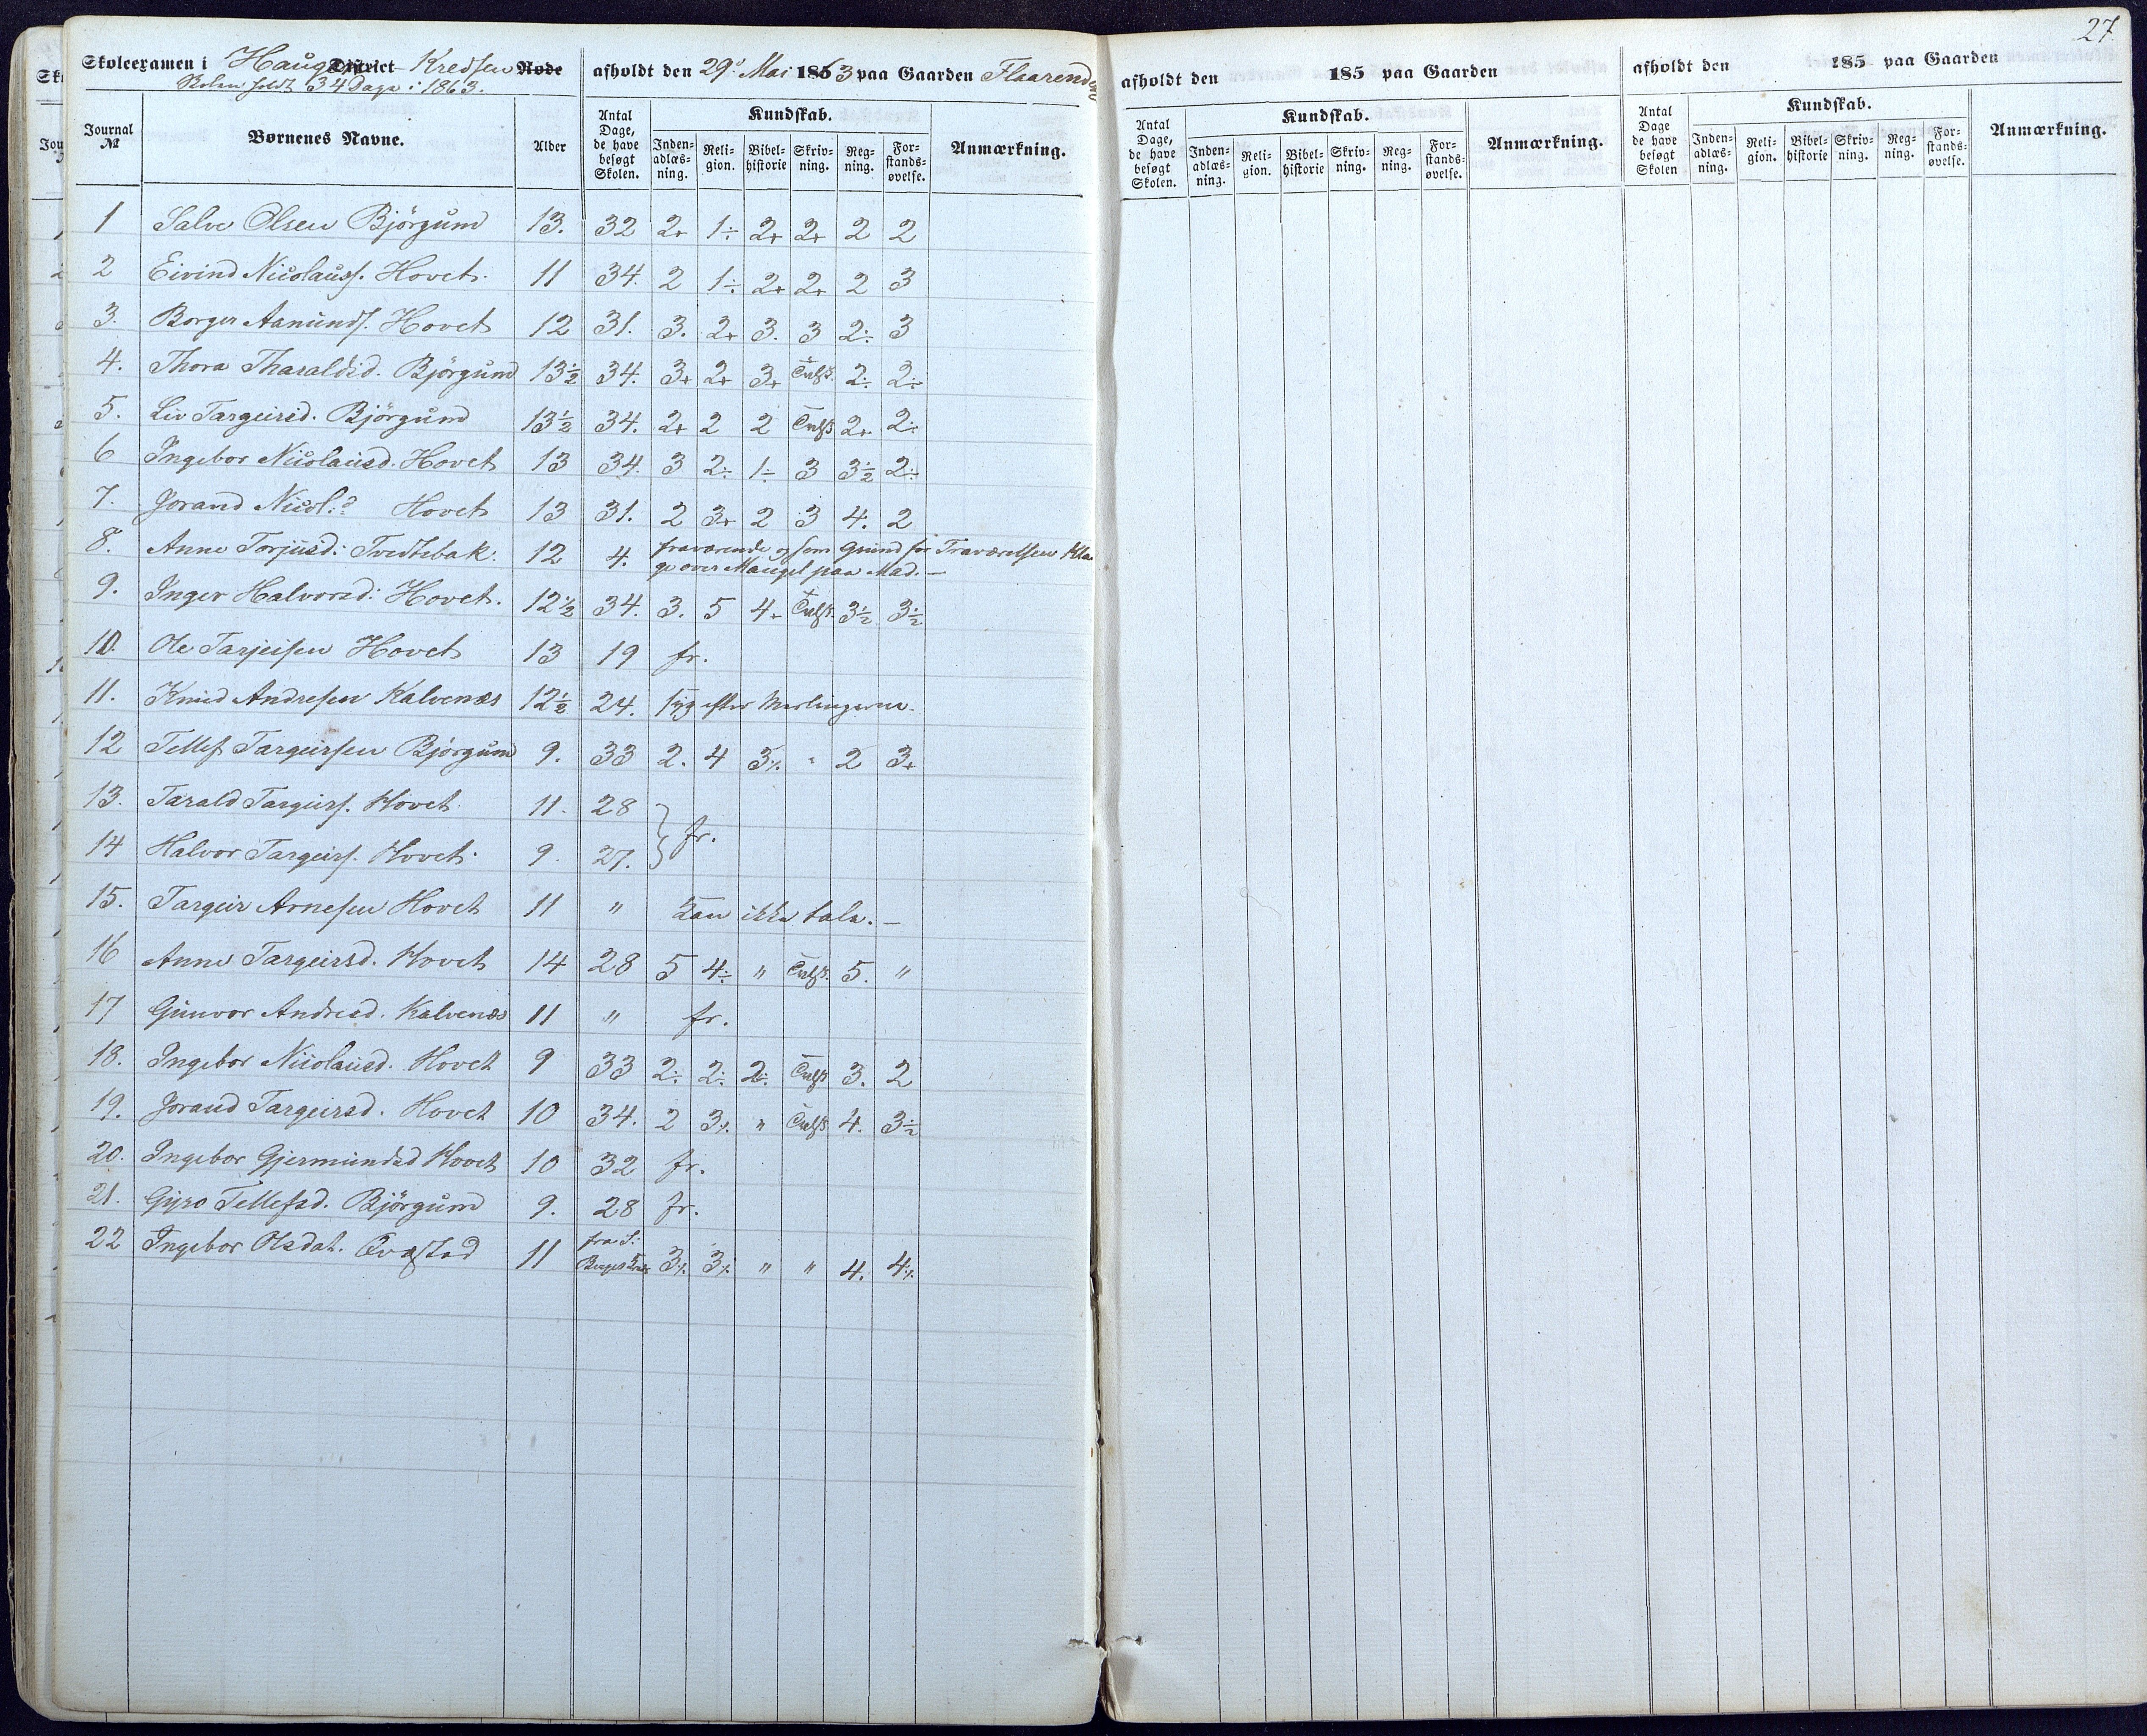 27.
Skoleexamen i Haug District Kredsen Rode afholdt den 29de Mai 1863 paa Gaarden Flaarend
Skolen holdt 34 Dage i 1863.
Journal № Børnenes Navne. Alder Antal Dage, de have besøgt Skolen. Kundskab. Inden-adlæs-ning. Reli-gion. Bibel-historie Skriv-ning. Reg-ning. For-stands-øvelse. Anmærkning.
1 Salve Olsen Björgum 13. 32 2+ 1÷ 2+ 2+ 2 2
2 Eivind Nicolauss. Hovet. 11 34. 2 1÷ 2+ 2+ 2 3
3. Borger Aanunds. Hovet 12 31. 3. 2+ 3. 3 2÷ 3
4. Thora Tharaldsd. Björgum 13½ 34. 3+ 2+ 3+ 2÷ 2÷
5. Liv Targeirsd. Björgum 13½ 34. 2+ 2 2 2+ 2÷
6 Ingebor Nicolausd. Hovet 13 34. 3 2÷ 1÷ 3 3½ 2÷
7. Jorand Nicol.? Hovet 13 31. 2 3+ 2 3 4. 2
8. Anne Torjusd: Tvedtebak: 12 4. fraværende og som Grund for Fraværelsen Kla
ge over Mangel paa Mad. —
9. Inger Halvorsd: Hovet. 12½ 34. 3. 5 4+ 3½ 3½
10. Ole Tarjeisen Hovet 13 19 fr.
11. Knud Andresen Kalvenæs 12½ 24. syg efter Meslingerne.
12 Tellef Targeirsen Björgum 9. 33 2. 4 3% " 2 3+
13. Tarald Targeirs. Hovet 11. 28
fr.
14 Halvor Targeirs. Hovet. 9. 27.
15. Targeir Arnesen Hovet 11 " Kan ikke tale. —
16 Anne Targeirsd. Hovet 14 28 5 4÷ " 5. "
17 Gunvor Andresd. Kalvenæs 11 " fr.
18. Ingebor Nicolausd. Hovet 9 33 2÷ 2÷ 2÷ 3. 2
19. Jorand Targeirsd. Hovet 10 34. 2 3% " 4. 3½
20. Ingebor Gjermundsd Hovet 10 32 fr.
21. Gyro Tellefsd. Björgum 9. 28 fr.
22 Ingebor Olsdat. Qvastad 11 fra 3% 3% " " 4. 4%
afholdt den 185 paa Gaarden
Antal Dage, de have besøgt Skolen. Kundskab. Inden-adlæs-ning. Reli-gion. Bibel-historie Skriv-ning. Reg-ning. For-stands-øvelse. Anmærkning.
afholdt den 185 paa Gaarden
Antal Dage de have besøgt Skolen Kundskab. Inden-adlæs-ning. Reli-gion. Bibel-historie Skriv-ning. Reg-ning. For-stands-øvelse. Anmærkning.